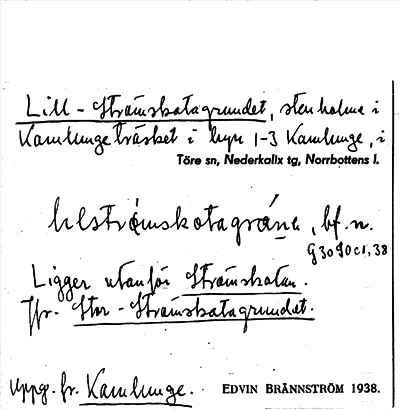 Lill-Strömskatagrundet, stenholme i
Kamlungeträsket i byn 1-3 Kamlunge, i
Töre sn, Nederkalix tg, Norrbottens l.
bf. n.
G 30 J0 c1, 38
Ligger utanför Strömskatan.
Jfr. Stor-Strömskatagrundet.
Uppg. fr. Kamlunge. EDVIN BRÄNNSTRÖM 1938.